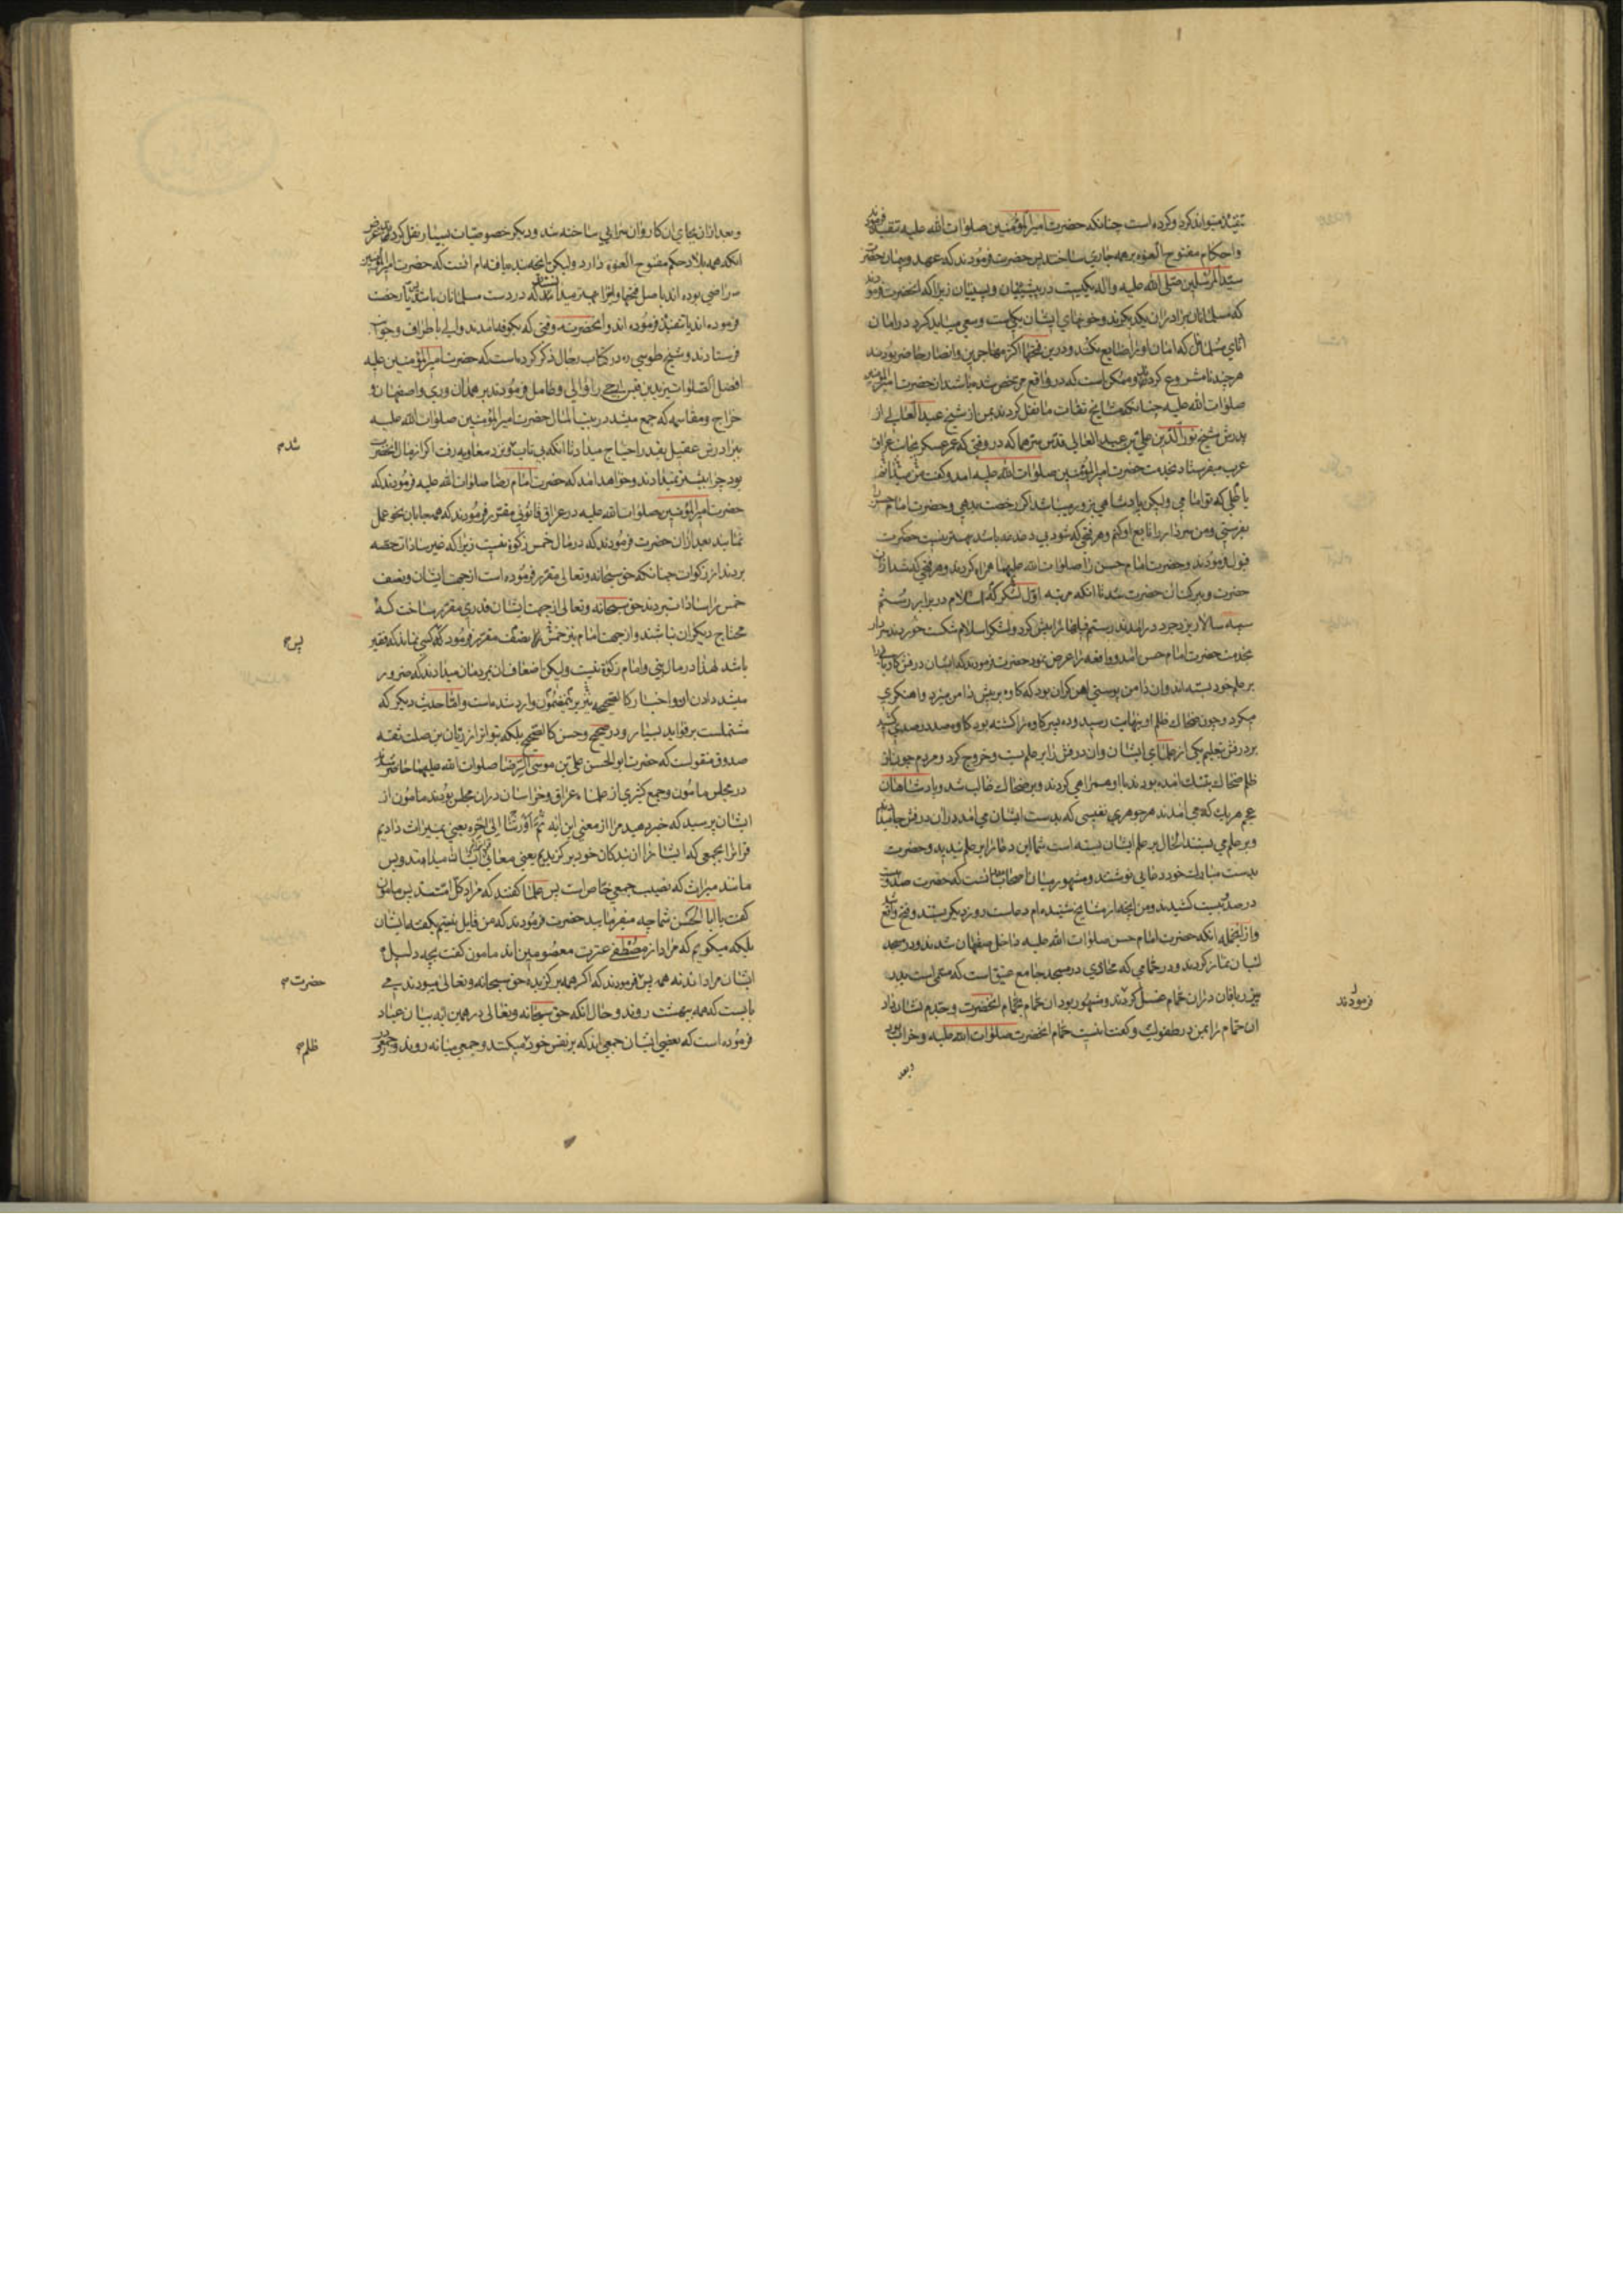 تقیة میتواند کرد و کرده است چنانکه حضرت امیر المؤمنین صلوات الله علیه تقیه فرمودند
و احکام مفتوح العنوه بر همه جاری ساختند پس حضرت فرمودند که عهد و پیمان حضرت
سید المرسلین صلی الله علیه و اله یکیست در پیشینیان و پسینیان زیرا که انحضرت فرمودند
که مسلمانان برادران یکدیکرند و خونهای ایشان یکیست و سعی میباید کرد در امان
ادنای مسلمانان که امان او را ضایع نکنند و درین فتحها اکثر مهاجرین و انصار حاضر بودند
هر چند نامشروع کردند و ممکن است که در واقع مرخص شده باشند از حضرت امیر المؤمنین
صلوات الله علیه چنانکه مشایخ ثقات ما نقل کردند بمن از شیخ عبد العالی از
پدرش شیخ نور الدین علی بن عبد العالی قدس سرهما که در وقتی که عمر عسکر بجانب عراق
عرب میفرستاد بخدمت حضرت امیر المؤمنین صلوات الله علیه امد و کفت من میدانم
یا علی که تو امامی ولیکن پادشاهی بزور میباشد اکر رخصت بدهی و حضرت امام حسن را
بفرستی و من سردار را تابع او کنم و هر فتحی که شود بی دغدغه باشد بهتر نیست حضرت
قبول فرمودند و حضرت امام حسن را صلوات الله علیهما همراه کردند و هر فتحی که شد از ان
حضرت و ببرکت ان حضرت شد تا انکه مرتبه اول لشکر که اسلام در برابر رستم
سپه سالار یزدجرد در امدند رستم فیلها را پیش کرد و لشکر اسلام شکست خوردند سردار
بخدمت حضرت امام حسن امد و واقعه را عرض نمود حضرت فرمودند که ایشان درفش کاویانی را
بر علم خود بسته اند و ان دامن پوستی اهن کران بود که کاوه بر پیش دامن میزد و اهنکری
میکرد و چون ضحاک ظلم او بنهایت رسید و ده پسر کاوه را کشته بود کاوه صد در صدی کشید
بر درفش بتعلیم یکی از علمای ایشان و ان درفش را بر علم بست و خروج کرد و مردم چون از
ظلم ضحاک بتنک امده بودند با او همراهی کردند و بر ضحاک غالب شد و پادشاهان
عجم هر یک که می امدند هر جوهری نفیسی که بدست ایشان می امد در ان درفش جا میداد
و بر علم می بستند الحال بر علم ایشان بسته است شما این دعا را بر علم بندید و حضرت
بدست مبارک خود دعایی نوشتند و مشهور میان اصحاب ما انست که حضرت صد و
در صد بیست کشیدند و من انچه از مشایخ شنیده ام دعاست روز دیکر بستند و فتح واقع شد
و از انجمله انکه حضرت امام حسن صلوات الله علیه داخل صفهان شدند و در مسجد
لنبان نماز کردند و در حمامی که محاذی در مسجد جامع عتیق است که مسمی است بدر
پیر ریافان در ان حمام غسل کردند و مشهور بود ان حمام بحمام انحضرت و جدم نشان داد
ان حمام را بمن در طفولیت و کفت اینست حمام انحضرت صلوات الله علیه و خراب بود
وبعد
فرمودند
وبعد از ان بجای ان کاروان سرایی ساخته شد و دیکر خصوصیات بسیار نقل کردند غرض
انکه همه بلاد حکم مفتوح العنوه دارد ولیکن انچه بنده یافته ام انست که حضرت امیر المؤمنین
راضی بوده اند باصل فتحها و انرا بهتر میدانستند که در دست مسلمانان باشد یا رخصت
فرموده اند یا تنفیذ فرموده اند و انحضرت وقتی که بکوفه امدند والی باطراف و جوانب
فرستادند و شیخ طوسی ره در کتاب رجال ذکر کرده است که حضرت امیر المؤمنین علیه
افضل الصلوات یزید بن قیس ارحبی را والی و عامل فرمودند بر همدان و ری و اصفهان و
خراج و مقاسمه که جمع میشد در بیت المال حضرت امیر المؤمنین صلوات الله علیه
ببرادرش عقیل بقدر احتیاج میداد تا انکه بی تاب شد و نزد معاویه رفت اکر از مال انحضرت
بود چرا بیشتر نمیدادند و خواهد امد که حضرت امام رضا صلوات الله علیه فرمودند که
حضرت امیر المؤمنین صلوات الله علیه در عراق قانونی مقرر فرمودند که همه جا بان نحو عمل
نمایند بعد از ان حضرت فرمودند که در مال خمس زکوة نیست زیرا که غیر سادات حصه
بردند از زکوات چنانکه حق سبحانه و تعالی مقرر فرموده است از جهت ایشان و نصف
خمس را سادات بردند حق سبحانه و تعالی از جهت ایشان قدری مقرر ساخت که
محتاج دیکران نباشند و از جهت امام نیز خمس را نصف مقرر فرمود که کسی نماند که فقیر
باشد لهذا در مال نبی و امام زکوة نیست ولیکن اضعاف ان بمردمان میدادند که ضرور
میشد دادن ان و اخبار کالصحیح نیز برین مضمون وارد شده است و اما حدیث دیکر که
مشتملست بر فواید بسیار و در صحیح و حسن کالصحیح بلکه بتواتر از ریان بن صلت ثقه
صدوق منقولست که حضرت ابو الحسن علی بن موسی الرضا صلوات الله علیهما حاضر شدند
در مجلس مامون و جمع کثیری از علماء عراق و خراسان در ان مجلس بودند مامون از
ایشان پرسید که خبر دهید مرا از معنی این ایه ثم اورثنا الی اخره یعنی بمیراث دادیم
قرانرا بجمعی که ایشانرا از بندکان خود برکزیدیم یعنی معانی قرانرا ایشان میدانند و پس
مانند میراث که نصیب جمعی خاص است پس علما کفتند که مراد کل امتند پس مامون
کفت یا ابا الحسن شما چه میفرمایید حضرت فرمودند که من قایل نیستم بکفته ایشان
بلکه میکویم که مراد از مصطفی عترت معصومین اند مامون کفت بچه دلیل
ایشان مراد اند نه همه پس فرمودند که اکر همه برکزیده حق سبحانه و تعالی میبودند می
بایست که همه ببهشت روند و حال انکه حق سبحانه و تعالی در همین ایه بیان عباد
فرموده است که بعضی ایشان جمعی اند که بر نفس خود میکنند و جمعی میانه روند و جمعی
شد
پس
حضرت
ظلم